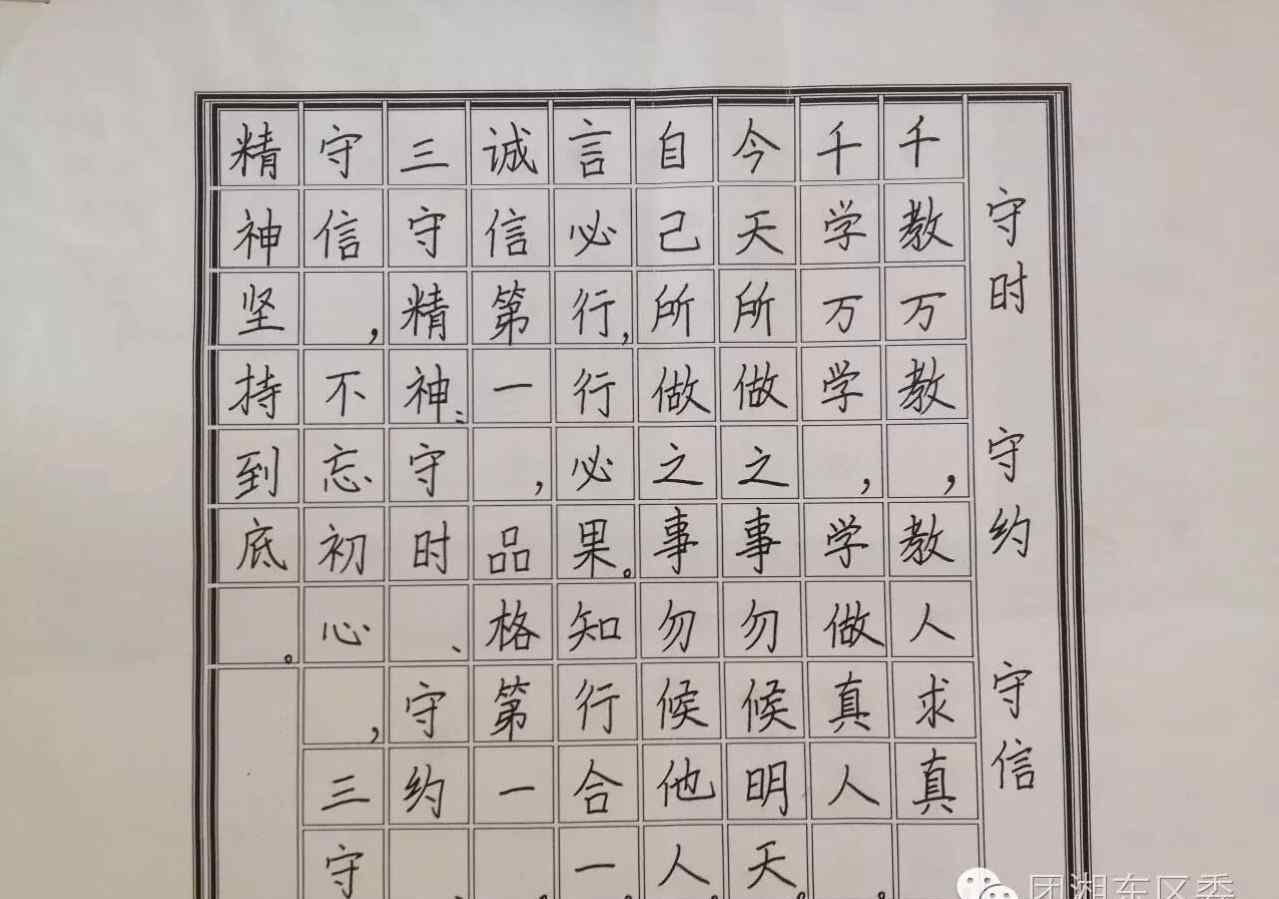 守时 守约 守信
千教万教，教人求真
千学万学，学做真人。
今天所做之事勿候明天。
自己所做之事勿候他人。
言必行，行必果。知行合一
诚信第一，品格第一
三守精神：守时、守约
守信，不忘初心，三守
精神坚持到底。
团湘东区委